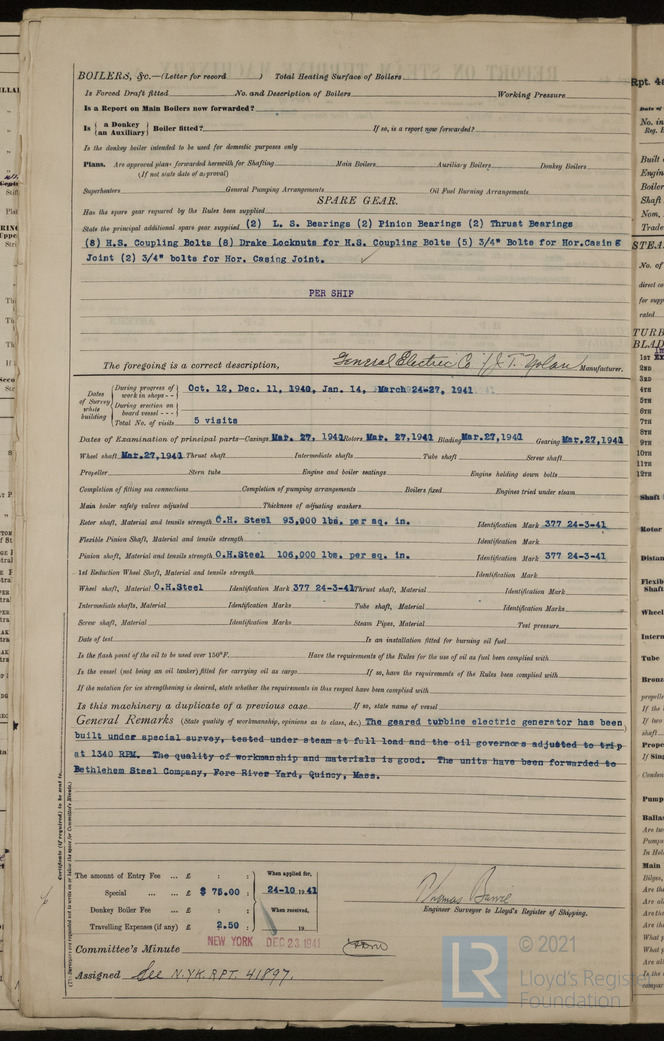 BOILERS, &c.—(Letter for record ) Total Heating Surface of Boilers
Is Forced Draft fitted No. and Description of Boilers Working Pressure
Is a Report on Main Boilers now forwarded?
Is { a Donkey / an Auxiliary } Boiler fitted? If so, is a report now forwarded?
Is the donkey boiler intended to be used for domestic purposes only
Plans. Are approved plans forwarded herewith for Shafting Main Boilers Auxiliary Boilers Donkey Boilers
(If not state date of approval)
Superheaters General Pumping Arrangements Oil Fuel Burning Arrangements
SPARE GEAR.
Has the spare gear required by the Rules been supplied
State the principal additional spare gear supplied (2) L. S. Bearings (2) Pinion Bearings (2) Thrust Bearings
(8) H.S. Coupling Bolts (8) Drake Locknuts for H.S. Coupling Bolts (5) 3/4" Bolts for Hor.Casing
Joint (2) 3/4" bolts for Hor. Casing Joint.
PER SHIP
The foregoing is a correct description, General Electric Co / J. T. Nolan Manufacturer.
Dates of Survey while building
During progress of work in shops - - Oct. 12, Dec. 11, 1940, Jan. 14, March 24-27, 1941
During erection on board vessel - - -
Total No. of visits 5 visits
Dates of Examination of principal parts—Casings Mar. 27, 1941 Rotors Mar. 27, 1941 Blading Mar.27,1941 Gearing Mar.27,1941
Wheel shaft Mar.27,1941 Thrust shaft Intermediate shafts Tube shaft Screw shaft
Propeller Stern tube Engine and boiler seatings Engine holding down bolts
Completion of fitting sea connections Completion of pumping arrangements Boilers fixed Engines tried under steam
Main boiler safety valves adjusted Thickness of adjusting washers
Rotor shaft, Material and tensile strength O.H. Steel 93,000 lbs. per sq. in. Identification Mark 377 24-3-41
Flexible Pinion Shaft, Material and tensile strength Identification Mark
Pinion shaft, Material and tensile strength O.H.Steel 106,000 lbs. per sq. in. Identification Mark 377 24-3-41
1st Reduction Wheel Shaft, Material and tensile strength Identification Mark
Wheel shaft, Material O.H.Steel Identification Mark 377 24-3-41 Thrust shaft, Material Identification Mark
Intermediate shafts, Material Identification Marks Tube shaft, Material Identification Marks
Screw shaft, Material Identification Marks Steam Pipes, Material Test pressure
Date of test Is an installation fitted for burning oil fuel
Is the flash point of the oil to be used over 150°F. Have the requirements of the Rules for the use of oil as fuel been complied with
Is the vessel (not being an oil tanker) fitted for carrying oil as cargo If so, have the requirements of the Rules been complied with
If the notation for ice strengthening is desired, state whether the requirements in this respect have been complied with
Is this machinery a duplicate of a previous case If so, state name of vessel
General Remarks (State quality of workmanship, opinions as to class, &c.) The geared turbine electric generator has been
built under special survey, tested under steam at full load and the oil governors adjusted to trip
at 1340 RPM. The quality of workmanship and materials is good. The units have been forwarded to
Bethlehem Steel Company, Fore River Yard, Quincy, Mass.
The amount of Entry Fee ... £ : : When applied for,
Special ... ... £ $ 75.00 : 24-10 1941
Donkey Boiler Fee ... £ : : When received,
Travelling Expenses (if any) £ 2.50 : 19
Engineer Surveyor to Lloyd's Register of Shipping.
Committee's Minute NEW YORK DEC 23 1941
Assigned See N.YK.RPT. 41897.
LR © 2021
Lloyd's Register
Foundation